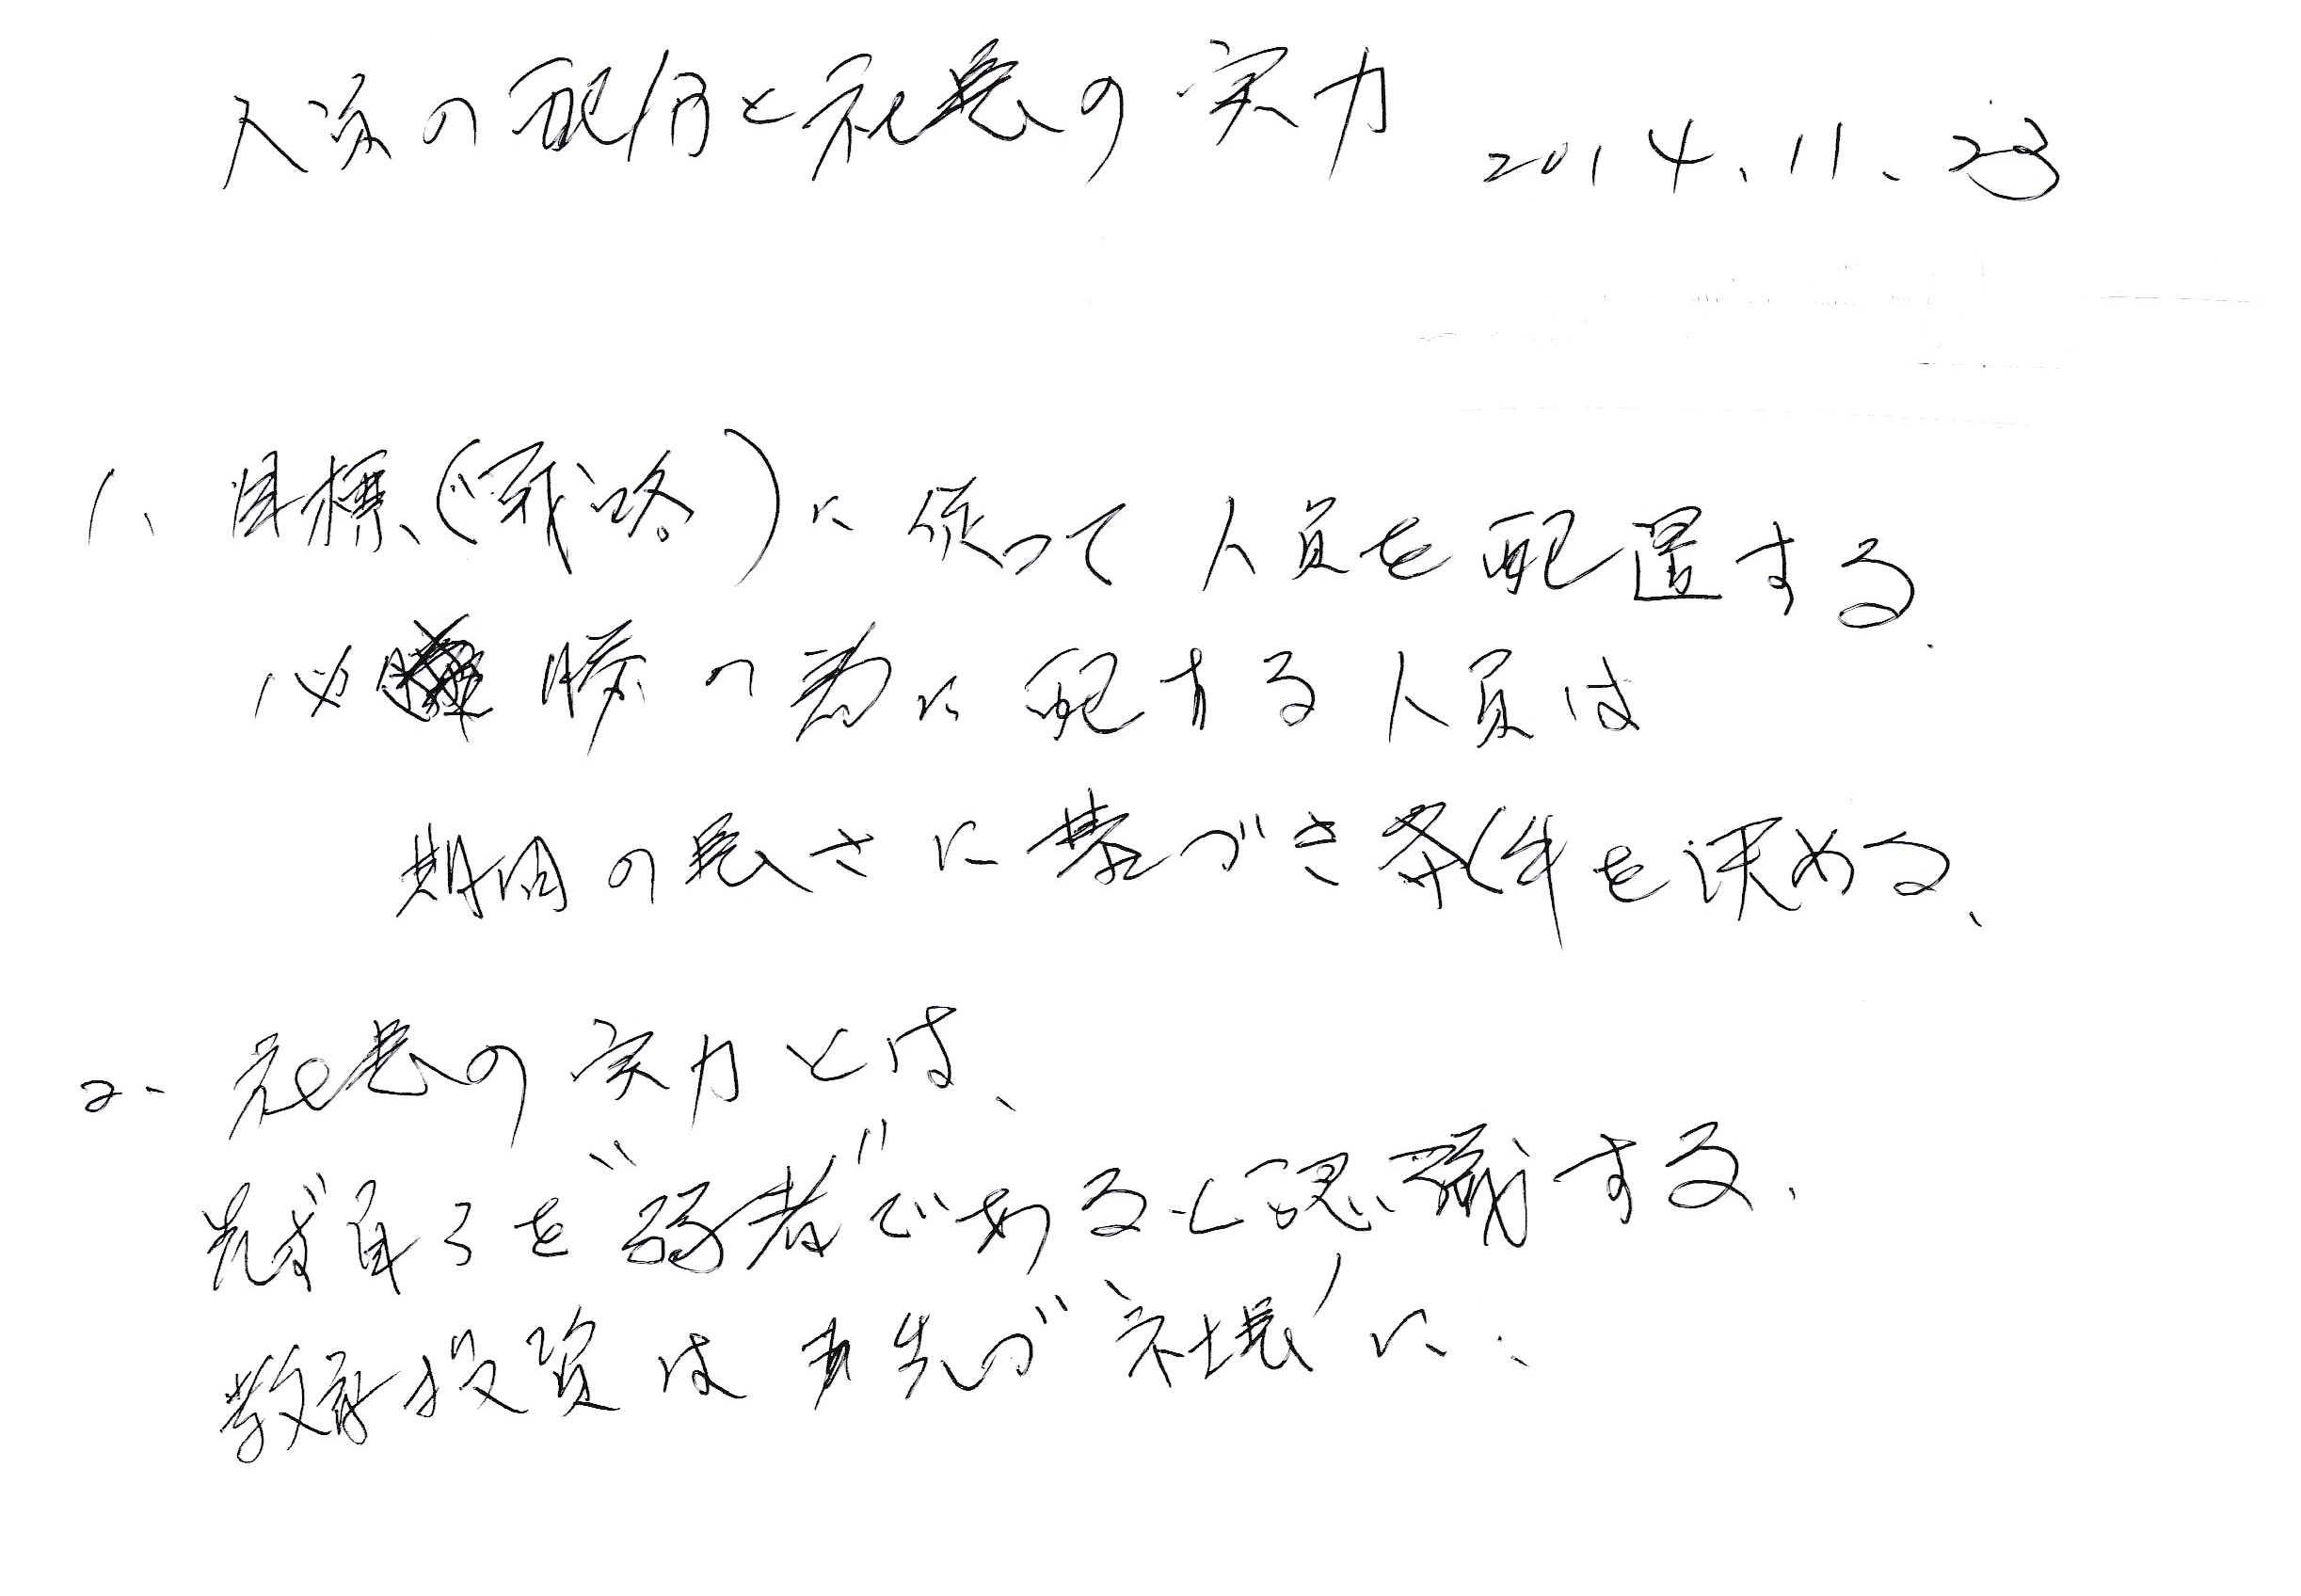 人員の配分と社長の実力 2014.11.23
1、目標、(戦略)に従って人員を配置する.
必勝の為に配する人員は
期間の長さに基づき条件を決める、
2. 社長の実力とは、
先ず自己を"弱者"であると認識する.
教育投資は 先づ"社長"に.